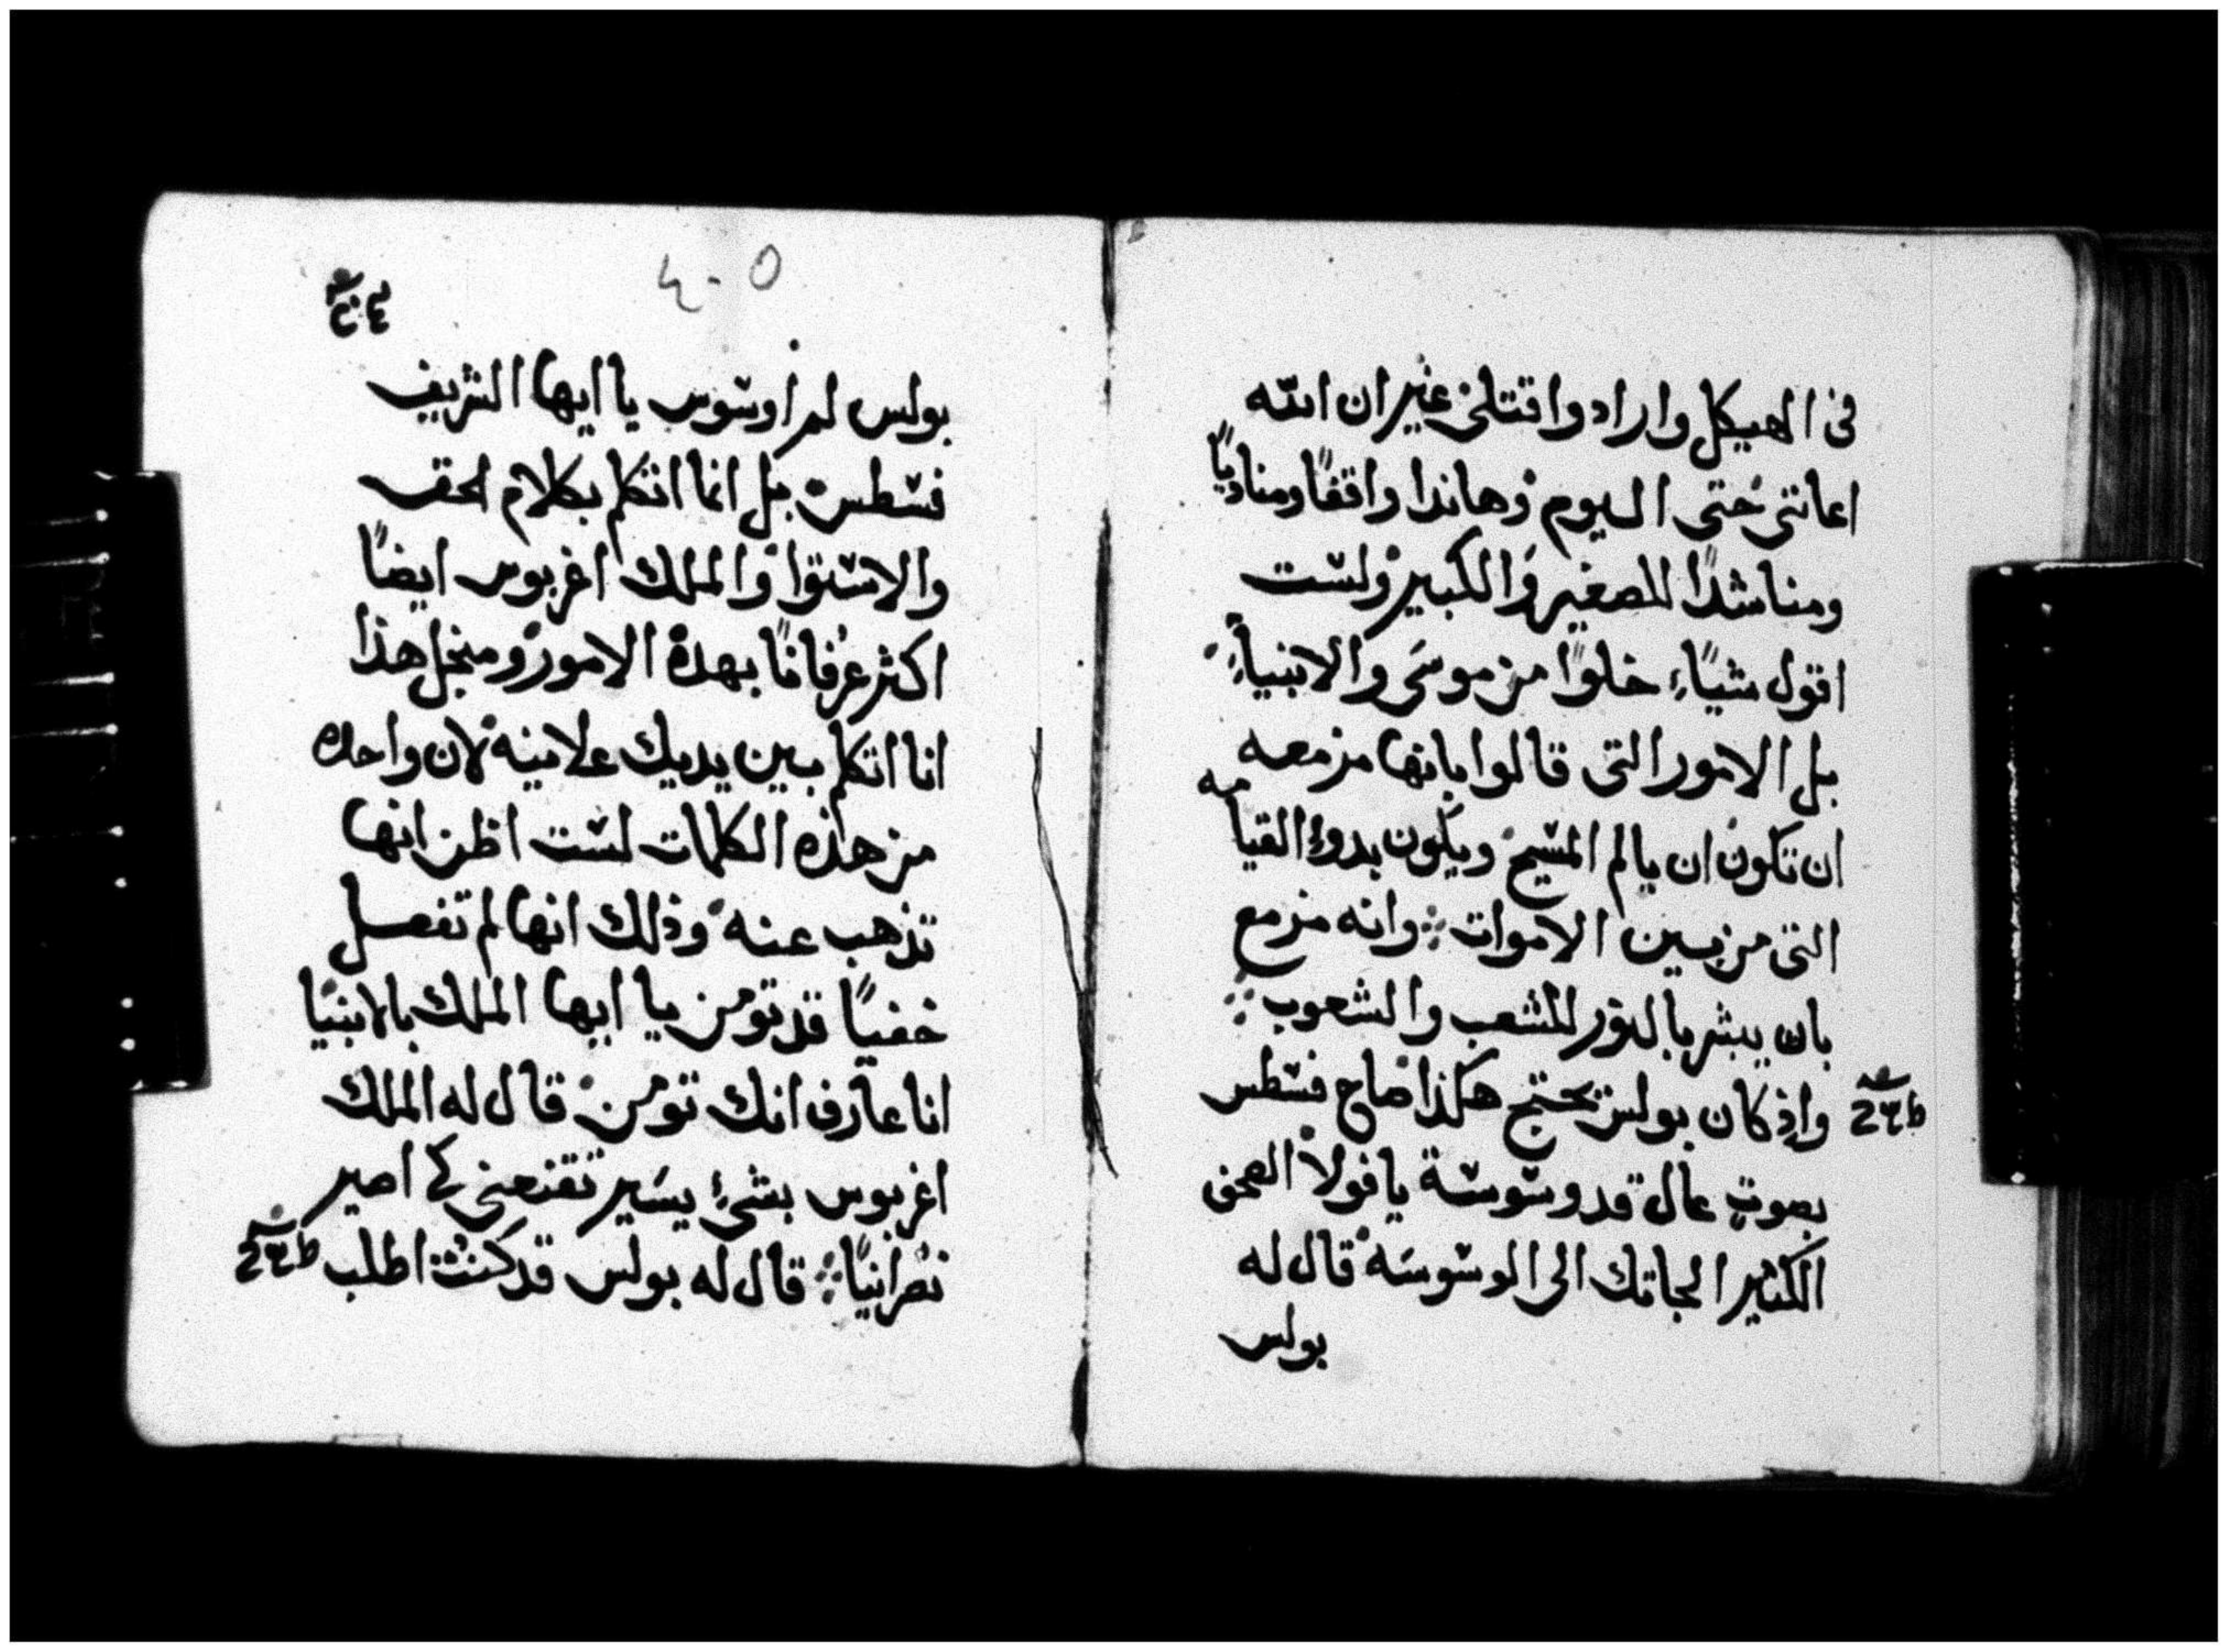 فى الهيكل وارادوا قتلى غير ان الله
اعاننى حتى اليوم وهاندا واقفًا ومناديًا
ومناشدًا للصغير والكبير ولست
اقول شياءً خلوًا من موسى والانبياءِ
بل الامور التى قالوا بانها مزمعه
ان تكون ان يالم المسيح ويكون بدوء القيامه
التى من بين الاموات وانه مزمع
بان يبشر بالنور للشعب والشعوب
واذ كان بولس يحتج هكذا صاح فسطس
بصوتٍ عال قد وسوست يا فولا العمق
الكثير الجاتك الى الوسوسه قال له
بولس
٤٠٥
بولس لم اوسوس يا ايها الشريف
فسطس بل انما اتكلم بكلام لحق
والاستوا والملك اغربوس ايضًا
اكثر عرفانًا بهده الامور ومنجل هذا
انا اتكلم بين يديك علانيه لان واحده
من هذه الكلمات لست اظن انها
تذهب عنه وذلك انها لم تفعل
خفيًا قد تومن يا ايها الملك بالانبيا
انا عارف انك تومن قال له الملك
اغربوس بشئ يسير تقنعنى كى اصير
نصرانيًا قال له بولس قد كنت اطلب